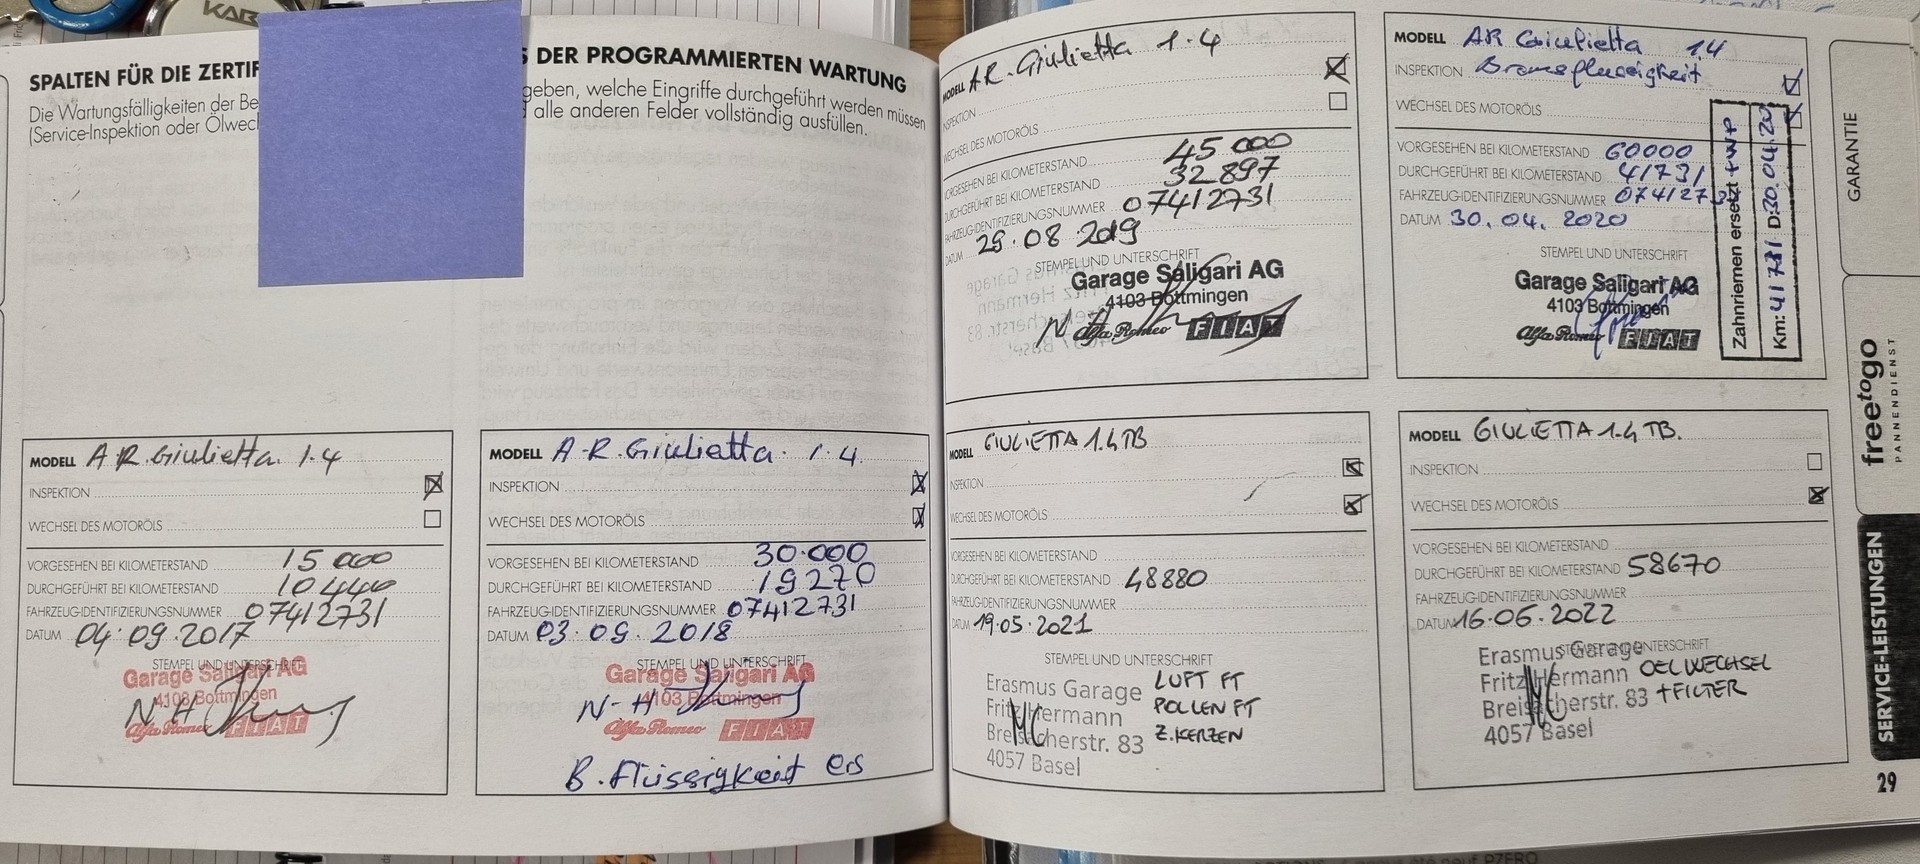 KAB
SPALTEN FÜR DIE ZERTIF
S DER PROGRAMMIERTEN WARTUNG
Die Wartungsfälligkeiten der Be
geben, welche Eingriffe durchgeführt werden müssen
(Service-Inspektion oder Ölwec
alle anderen Felder vollständig ausfüllen.
MODELL A R. Giulietta 1.4
INSPEKTION
WECHSEL DES MOTORÖLS
VORGESEHEN BEI KILOMETERSTAND 15 000
DURCHGEFÜHRT BEI KILOMETERSTAND 10 440
FAHRZEUG-IDENTIFIZIERUNGSNUMMER 07412731
DATUM 04.09.2017
STEMPEL UND UNTERSCHRIFT
Garage Saligari AG
4103 Bottmingen
N-H
Alfa Romeo FIAT
MODELL A-R. Giulietta. 1.4.
INSPEKTION
WECHSEL DES MOTORÖLS
VORGESEHEN BEI KILOMETERSTAND 30.000
DURCHGEFÜHRT BEI KILOMETERSTAND 19270
FAHRZEUG-IDENTIFIZIERUNGSNUMMER 07412731
DATUM 03.09.2018
STEMPEL UND UNTERSCHRIFT
Garage Saligari AG
4103 Bottmingen
N-H
Alfa Romeo FIAT
B. Flüssigkeit ers
MODELL A.R. Giulietta 1.4
INSPEKTION
WECHSEL DES MOTORÖLS
VORGESEHEN BEI KILOMETERSTAND 45 000
DURCHGEFÜHRT BEI KILOMETERSTAND 32 897
FAHRZEUG-IDENTIFIZIERUNGSNUMMER 07412731
DATUM 29.08 2019
STEMPEL UND UNTERSCHRIFT
Garage Saligari AG
4103 Bottmingen
N-H
Alfa Romeo FIAT
MODELL AR Giulietta 1.4
INSPEKTION Bremsflussigkeit
WECHSEL DES MOTORÖLS
VORGESEHEN BEI KILOMETERSTAND 60000
DURCHGEFÜHRT BEI KILOMETERSTAND 41731
FAHRZEUG-IDENTIFIZIERUNGSNUMMER 07412731
DATUM 30.04.2020
STEMPEL UND UNTERSCHRIFT
Garage Saligari AG
4103 Bottmingen
Alfa Romeo FIAT
Zahnriemen ersetzt +WP
Km: 41731 D:30.04.20
MODELL GIULIETTA 1.4 TB
INSPEKTION
WECHSEL DES MOTORÖLS
VORGESEHEN BEI KILOMETERSTAND
DURCHGEFÜHRT BEI KILOMETERSTAND 48880
FAHRZEUG-IDENTIFIZIERUNGSNUMMER
DATUM 19.05.2021
STEMPEL UND UNTERSCHRIFT
Erasmus Garage LUFT FT
Fritz Hermann POLLEN FT
Breisacherstr. 83 Z.KERZEN
4057 Basel
MODELL GIULIETTA 1.4 TB.
INSPEKTION
WECHSEL DES MOTORÖLS
VORGESEHEN BEI KILOMETERSTAND
DURCHGEFÜHRT BEI KILOMETERSTAND 58670
FAHRZEUG-IDENTIFIZIERUNGSNUMMER
DATUM 16.06.2022
STEMPEL UND UNTERSCHRIFT
Erasmus Garage
Fritz Hermann OEL WECHSEL
Breisacherstr. 83 +FILTER
4057 Basel
GARANTIE
freetogo
PANNENDIENST
SERVICE-LEISTUNGEN
29